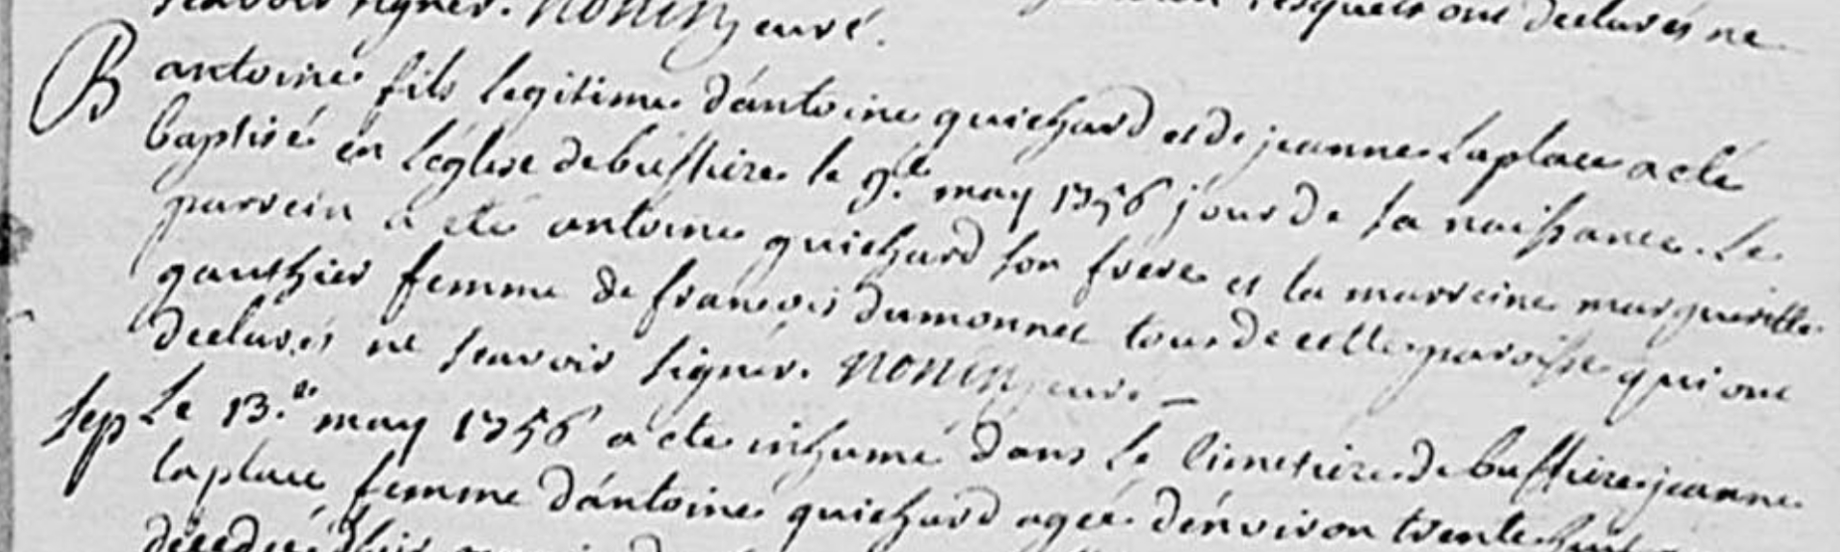 scavoir signer. Nonin curé. lesquels ont declarés ne
B antoine fils legitime d'antoine guichard et de jeanne Laplace a eté
baptisé en l'église de bussiere le 9.e may 1756 jour de sa naissance. Le
parrein a eté antoine guichard son frere et la marreine margueritte
gauthier femme de françois Dumonnet tous de cette paroisse qui ont
declarés ne scavoir signer. Nonin curé.
sep Le 13.e may 1756 a eté inhumé dans le cimetiere de bussiere jeanne
laplace femme d'antoine guichard agée d'environ trente huit
décedée hier